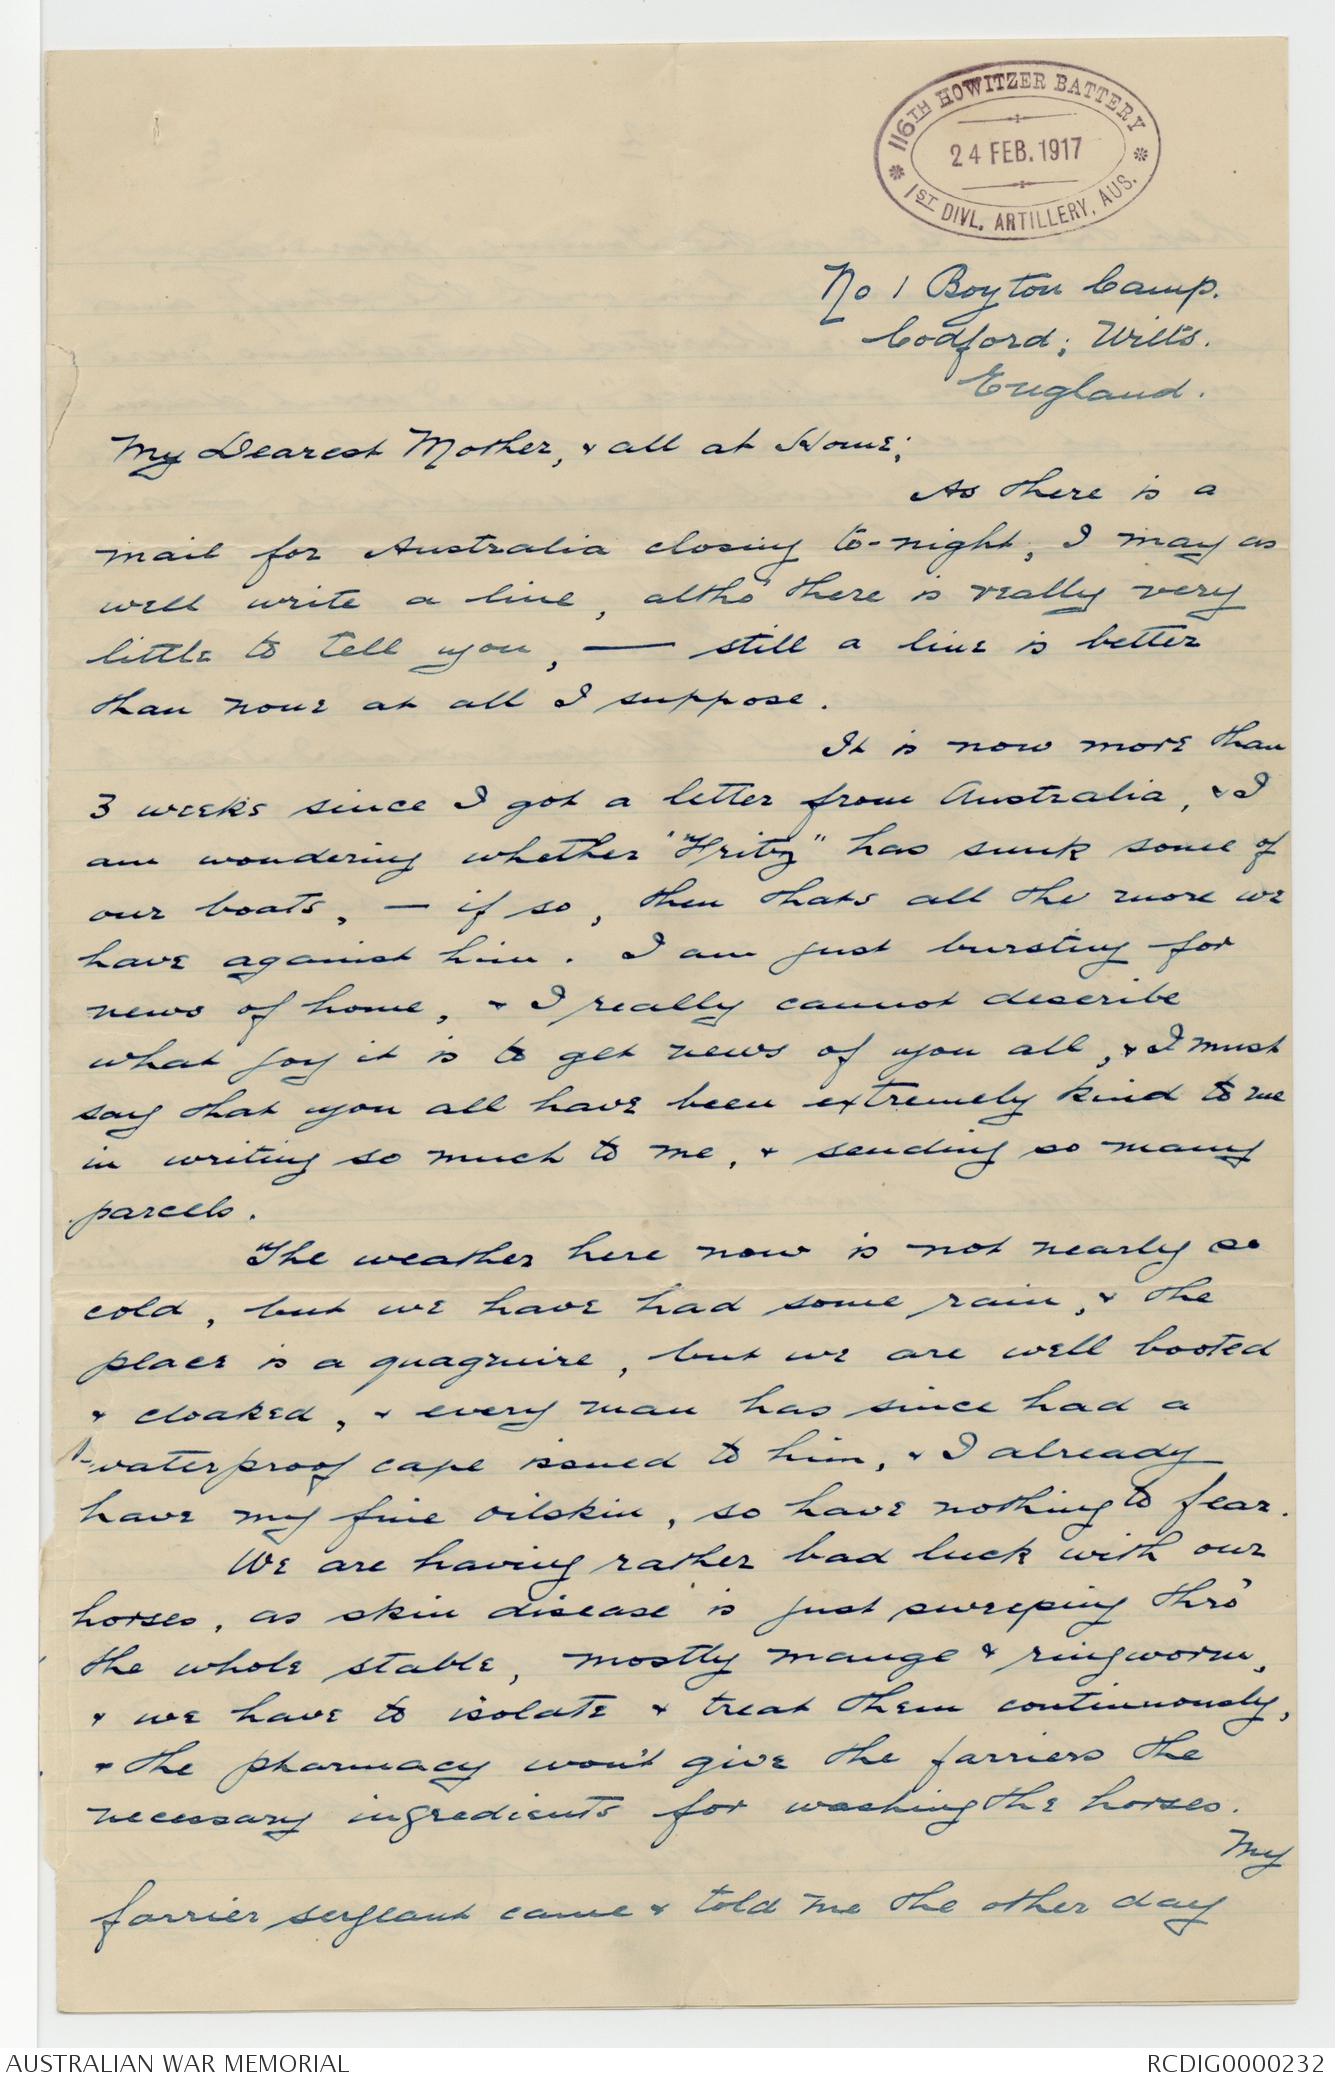 116TH HOWITZER BATTERY
24 FEB. 1917
1ST DIVL. ARTILLERY, AUS.
No 1 Boyton Camp.
Codford; Wilts.
England.
My Dearest Mother, & all at Home;
As there is a
mail for Australia closing to-night, I may as
well write a line, altho' there is really very
little to tell you, — still a line is better
than none at all I suppose.
It is now more than
3 weeks since I got a letter from Australia, & I
am wondering whether "Fritz" has sunk some of
our boats, — if so, then thats all the more we
have against him. I am just bursting for
news of home, & I really cannot describe
what joy it is to get news of you all, & I must
say that you all have been extremely kind to me
in writing so much to me, & sending so many
parcels.
The weather here now is not nearly so
cold, but we have had some rain, & the
place is a quagmire, but we are well booted
& cloaked, & every man has since had a
waterproof cape issued to him, & I already
have my fine oilskin, so have nothing to fear.
We are having rather bad luck with our
horses, as skin disease is just sweeping thro'
the whole stable, mostly mange & ringworm,
& we have to isolate & treat them continuously,
& the pharmacy won't give the farriers the
necessary ingredients for washing the horses.
My
farrier sergeant came & told me the other day
AUSTRALIAN WAR MEMORIAL
RCDIG0000232